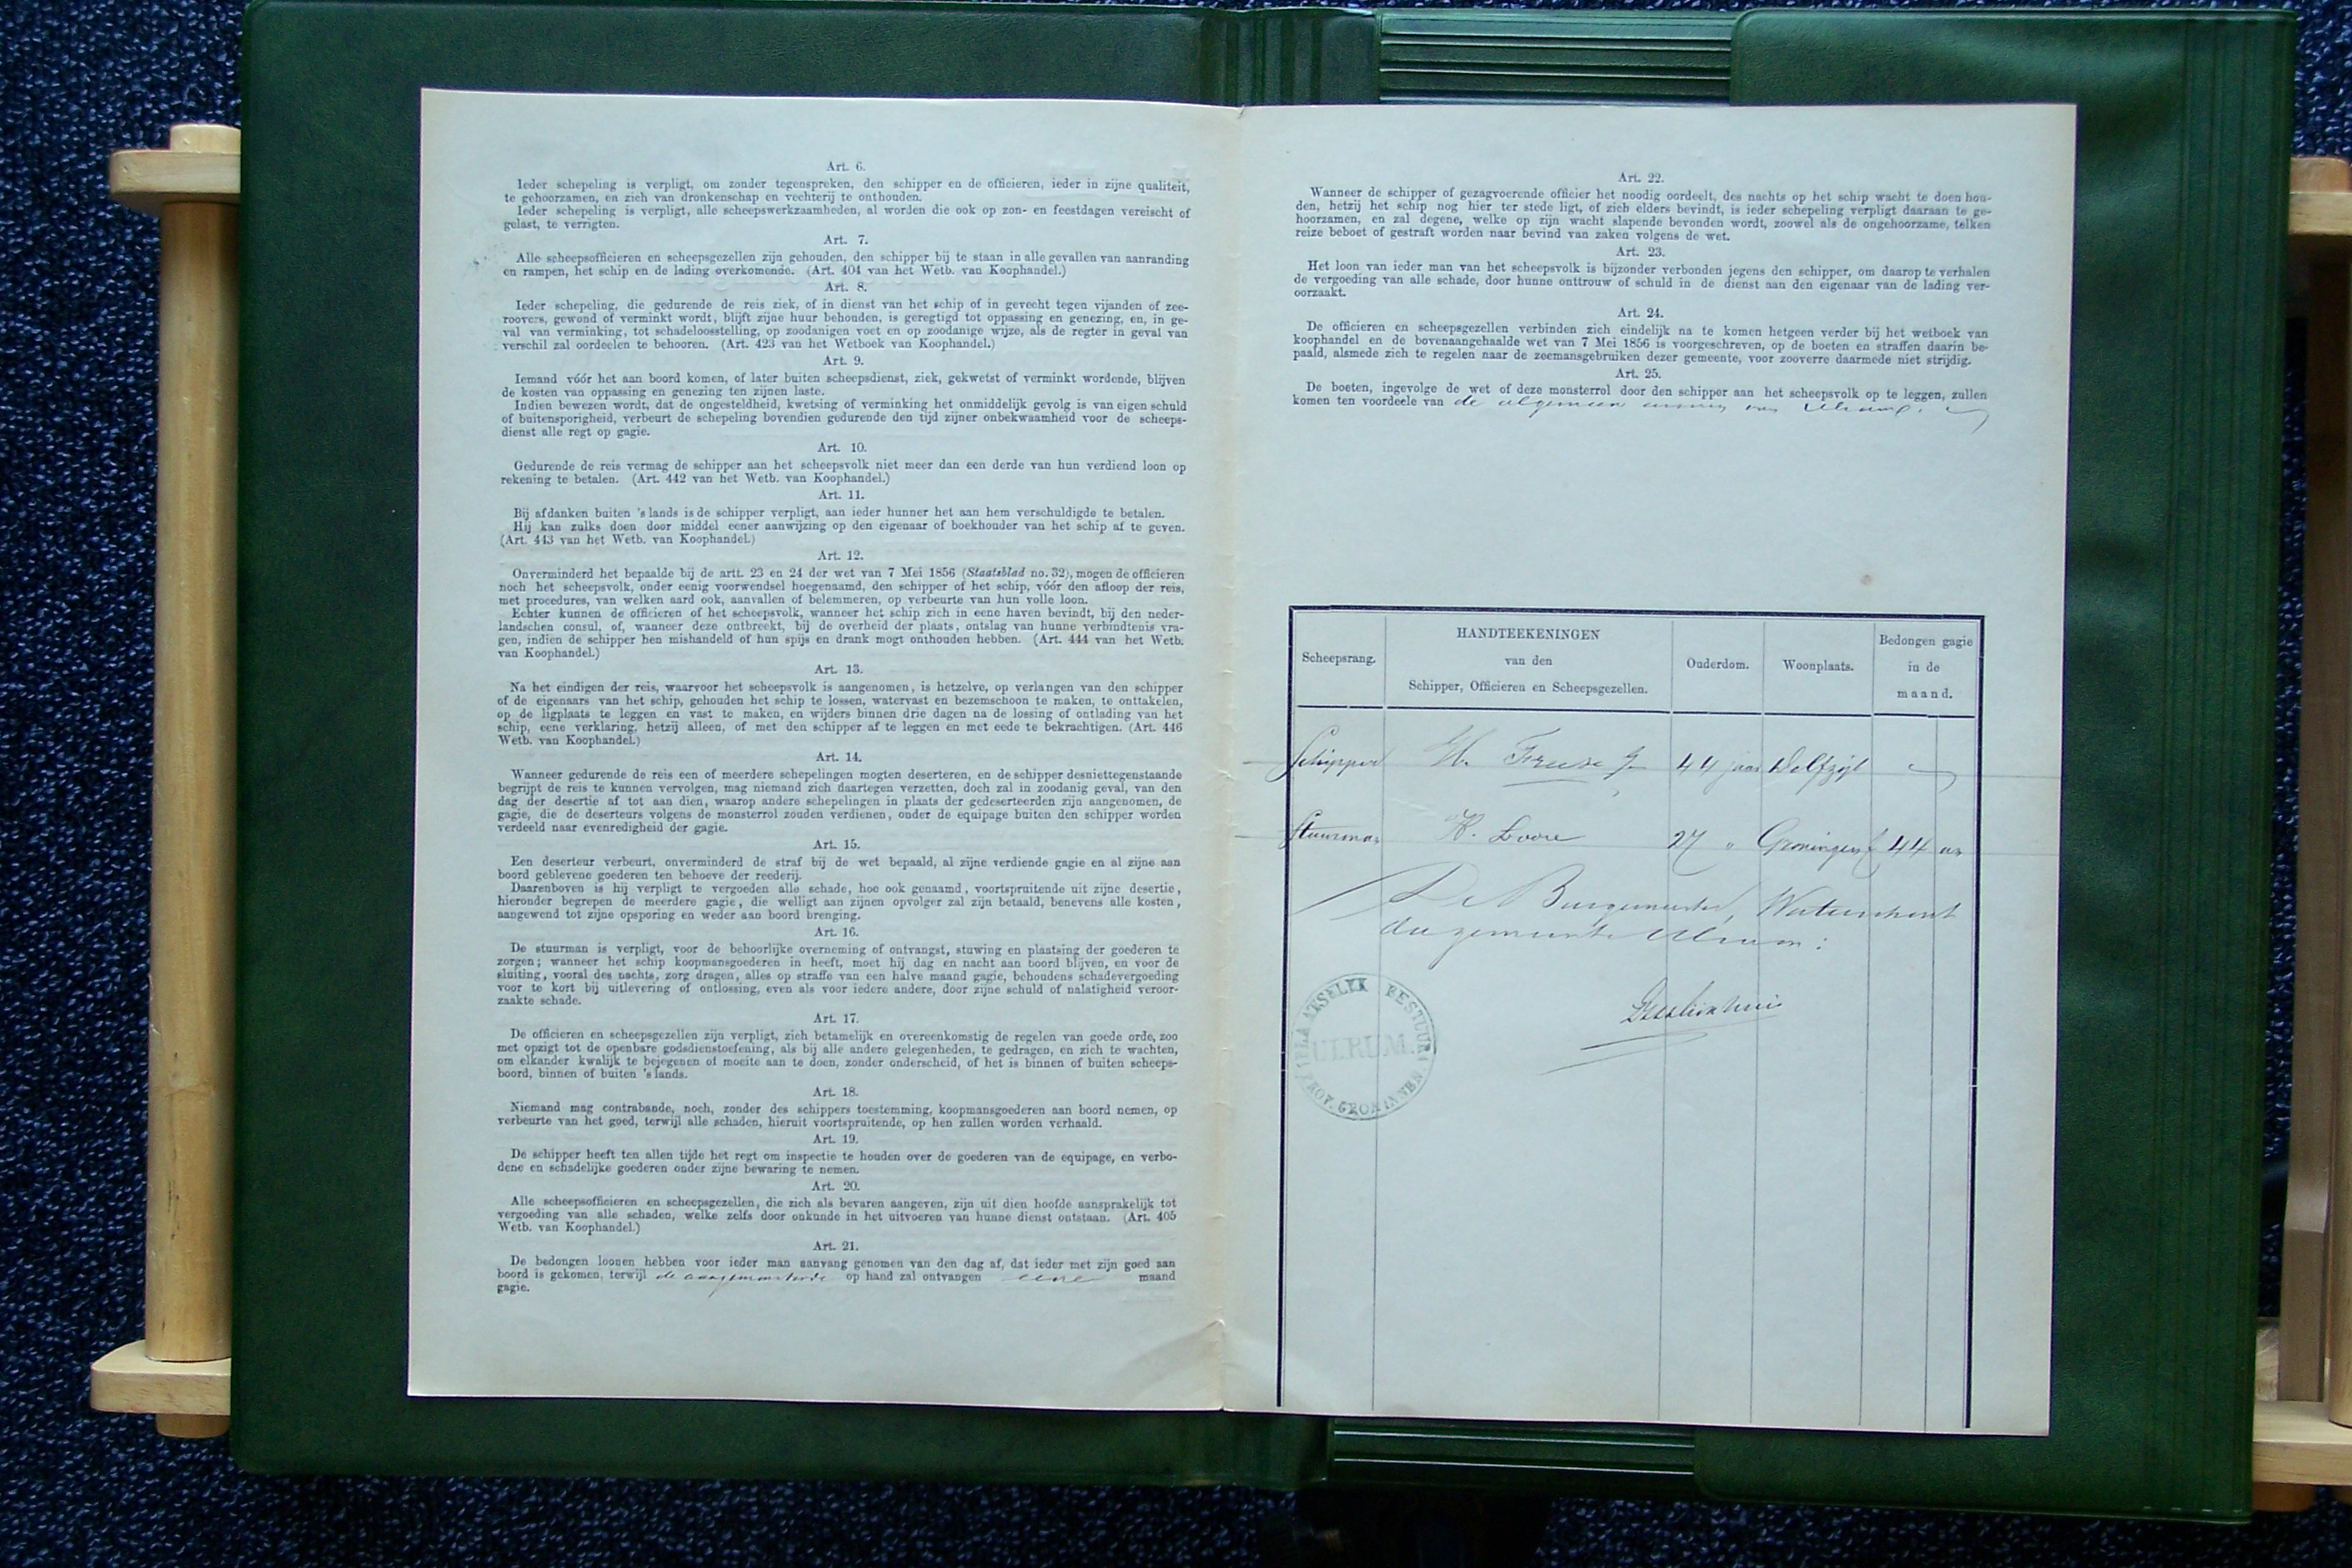 Art. 6.
Ieder schepeling is verpligt, om zonder tegenspreken, den schipper en de officieren, ieder in zijne qualiteit,
te gehoorzamen, en zich van dronkenschap en vechterij te onthouden.
Ieder schepeling is verpligt, alle scheepswerkzaamheden, al worden die ook op zon- en feestdagen vereischt of
gelast, te verrigten.
Art. 7.
Alle scheepsofficieren en scheepsgezellen zijn gehouden, den schipper bij te staan in alle gevallen van aanranding
en rampen, het schip en de lading overkomende. (Art. 404 van het Wetb. van Koophandel.)
Art. 8.
Ieder schepeling, die gedurende de reis ziek, of in dienst van het schip of in gevecht tegen vijanden of zee-
roovers, gewond of verminkt wordt, blijft zijne huur behouden, is geregtigd tot oppassing en genezing, en, in ge-
val van verminking, tot schadeloosstelling, op zoodanigen voet en op zoodanige wijze, als de regter in geval van
verschil zal oordeelen te behooren. (Art. 423 van het Wetboek van Koophandel.)
Art. 9.
Iemand vóór het aan boord komen, of later buiten scheepsdienst, ziek, gekwetst of verminkt wordende, blijven
de kosten van oppassing en genezing ten zijnen laste.
Indien bewezen wordt, dat de ongesteldheid, kwetsing of verminking het onmiddelijk gevolg is van eigen schuld
of buitensporigheid, verbeurt de schepeling bovendien gedurende den tijd zijner onbekwaamheid voor de scheeps-
dienst alle regt op gagie.
Art. 10.
Gedurende de reis vermag de schipper aan het scheepsvolk niet meer dan een derde van hun verdiend loon op
rekening te betalen. (Art. 442 van het Wetb. van Koophandel.)
Art. 11.
Bij afdanken buiten 's lands is de schipper verpligt, aan ieder hunner het aan hem verschuldigde te betalen.
Hij kan zulks doen door middel eener aanwijzing op den eigenaar of boekhouder van het schip af te geven.
(Art. 443 van het Wetb. van Koophandel.)
Art. 12.
Onverminderd het bepaalde bij de artt. 23 en 24 der wet van 7 Mei 1856 (Staatsblad no. 32), mogen de officieren
noch het scheepsvolk, onder eenig voorwendsel hoegenaamd, den schipper of het schip, vóór den afloop der reis,
met procedures, van welken aard ook, aanvallen of belemmeren, op verbeurte van hun volle loon.
Echter kunnen de officieren of het scheepsvolk, wanneer het schip zich in eene haven bevindt, bij den neder-
landschen consul, of, wanneer deze ontbreekt, bij de overheid der plaats, ontslag van hunne verbindtenis vra-
gen, indien de schipper hen mishandeld of hun spijs en drank mogt onthouden hebben. (Art. 444 van het Wetb.
van Koophandel.)
Art. 13.
Na het eindigen der reis, waarvoor het scheepsvolk is aangenomen, is hetzelve, op verlangen van den schipper
of de eigenaars van het schip, gehouden het schip te lossen, watervast en bezemschoon te maken, te onttakelen,
op de ligplaats te leggen en vast te maken, en wijders binnen drie dagen na de lossing of ontlading van het
schip, eene verklaring, hetzij alleen, of met den schipper af te leggen en met eede te bekrachtigen. (Art. 446
Wetb. van Koophandel.)
Art. 14.
Wanneer gedurende de reis een of meerdere schepelingen mogten deserteren, en de schipper desniettegenstaande
begrijpt de reis te kunnen vervolgen, mag niemand zich daartegen verzetten, doch zal in zoodanig geval, van den
dag der desertie af tot aan dien, waarop andere schepelingen in plaats der gedeserteerden zijn aangenomen, de
gagie, die de deserteurs volgens de monsterrol zouden verdienen, onder de equipage buiten den schipper worden
verdeeld naar evenredigheid der gagie.
Art. 15.
Een deserteur verbeurt, onverminderd de straf bij de wet bepaald, al zijne verdiende gagie en al zijne aan
boord geblevene goederen ten behoeve der reederij.
Daarenboven is hij verpligt te vergoeden alle schade, hoe ook genaamd, voortspruitende uit zijne desertie,
hieronder begrepen de meerdere gagie, die welligt aan zijnen opvolger zal zijn betaald, benevens alle kosten,
aangewend tot zijne opsporing en weder aan boord brenging.
Art. 16.
De stuurman is verpligt, voor de behoorlijke overneming of ontvangst, stuwing en plaatsing der goederen te
zorgen; wanneer het schip koopmansgoederen in heeft, moet hij dag en nacht aan boord blijven, en voor de
sluiting, vooral des nachts, zorg dragen, alles op straffe van een halve maand gagie, behoudens schadevergoeding
voor te kort bij uitlevering of ontlossing, even als voor iedere andere, door zijne schuld of nalatigheid veroor-
zaakte schade.
Art. 17.
De officieren en scheepsgezellen zijn verpligt, zich betamelijk en overeenkomstig de regelen van goede orde, zoo
met opzigt tot de openbare godsdienstoefening, als bij alle andere gelegenheden, te gedragen, en zich te wachten,
om elkander kwalijk te bejegenen of moeite aan te doen, zonder onderscheid, of het is binnen of buiten scheeps-
boord, binnen of buiten 's lands.
Art. 18.
Niemand mag contrabande, noch, zonder des schippers toestemming, koopmansgoederen aan boord nemen, op
verbeurte van het goed, terwijl alle schaden, hieruit voortspruitende, op hen zullen worden verhaald.
Art. 19.
De schipper heeft ten allen tijde het regt om inspectie te houden over de goederen van de equipage, en verbo-
dene en schadelijke goederen onder zijne bewaring te nemen.
Art. 20.
Alle scheepsofficieren en scheepsgezellen, die zich als bevaren aangeven, zijn uit dien hoofde aansprakelijk tot
vergoeding van alle schaden, welke zelfs door onkunde in het uitvoeren van hunne dienst ontstaan. (Art. 405
Wetb. van Koophandel.)
Art. 21.
De bedongen loonen hebben voor ieder man aanvang genomen van den dag af, dat ieder met zijn goed aan
boord is gekomen, terwijl de aangemonsterde op hand zal ontvangen eene maand
gagie.
Art. 22.
Wanneer de schipper of gezagvoerende officier het noodig oordeelt, des nachts op het schip wacht te doen hou-
den, hetzij het schip nog hier ter stede ligt, of zich elders bevindt, is ieder schepeling verpligt daaraan te ge-
hoorzamen, en zal degene, welke op zijn wacht slapende bevonden wordt, zoowel als de ongehoorzame, telken
reize beboet of gestraft worden naar bevind van zaken volgens de wet.
Art. 23.
Het loon van ieder man van het scheepsvolk is bijzonder verbonden jegens den schipper, om daarop te verhalen
de vergoeding van alle schade, door hunne onttrouw of schuld in de dienst aan den eigenaar van de lading ver-
oorzaakt.
Art. 24.
De officieren en scheepsgezellen verbinden zich eindelijk na te komen hetgeen verder bij het wetboek van
koophandel en de bovenaangehaalde wet van 7 Mei 1856 is voorgeschreven, op de boeten en straffen daarin be-
paald, alsmede zich te regelen naar de zeemansgebruiken dezer gemeente, voor zooverre daarmede niet strijdig.
Art. 25.
De boeten, ingevolge de wet of deze monsterrol door den schipper aan het scheepsvolk op te leggen, zullen
komen ten voordeele van de algemeen armen van Ulrum.
Scheepsrang.
HANDTEEKENINGEN
van den
Schipper, Officieren en Scheepsgezellen.
Ouderdom.
Woonplaats.
Bedongen gagie
in de
maand.
Schipper H. Freese Jr 44 jaar Delfzijl
Stuurman H. 27 " Groningen f 44
De Burgemeester, Waterschout
der gemeente Ulrum:
PLAATSELYK BESTUUR
ULRUM.
PROV. GRONINGEN